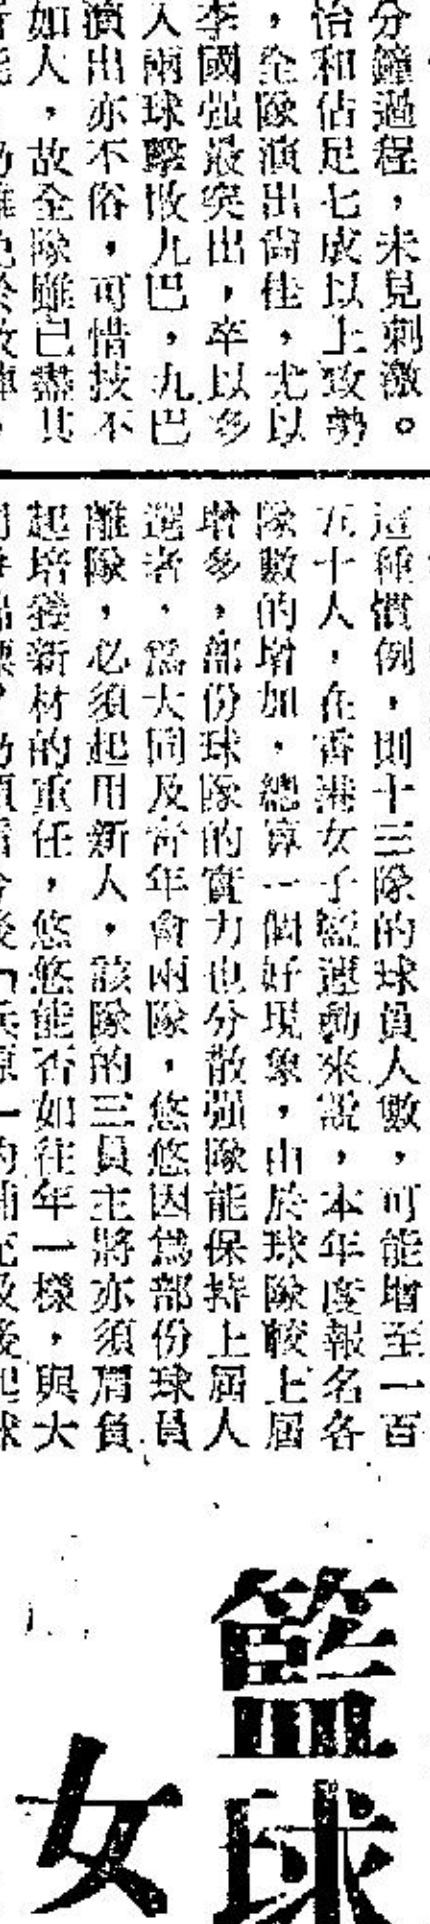 分鐘過程，未見刺激。
怡和佔足七成以上攻勢
，全隊演出尙佳，尤以
李國强最突出，卒以多
入兩球擊敗九巴，九巴
演出亦不俗，可惜技不
如人，故全隊雖已盡其
這種慣例，則十三隊的球員人數，可能增至一百
五十人，在香港女子籃運動來說，本年度報名各
隊數的增加，總算一個好現象，由於球隊較上屆
增多，部份球隊的實力也分散强隊能保持上屆人
選者，爲大同及靑年會兩隊，悠悠因爲部份球員
離隊，必須起用新人，該隊的三員主將亦須肩負
起培養新材的重任，悠悠能否如往年一樣，與大
籃球
女